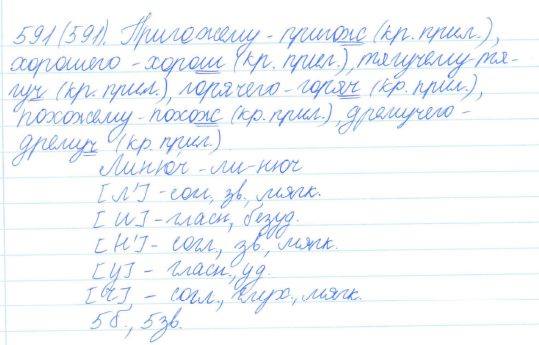 591 (591). Пригожему - пригож (кр. прил.),
хорошего - хорош (кр. прил.), тягучему - тя-
гуч (кр. прил.), горячего - горяч (кр. прил.),
похожему - похож (кр. прил.), дремучего -
дремуч (кр. прил.)
Линюч - ли-нюч
[Л'] - сог., зв., мягк.
[И] - гласн., безуд.
[Н'] - согл., зв., мягк.
[У] - гласн., уд.
[Ч], - согл., глух., мягк.
5 б., 5 зв.